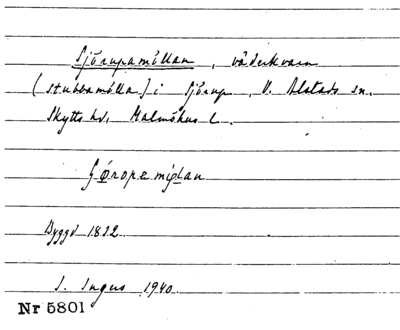 Sjörupamöllan, väderkvarn
(stubbamölla) i Sjörup, V. Alstads sn.
Skytts hd, Malmöhus l.
Byggd 1822
S. Ingers 1940
Nr 5801